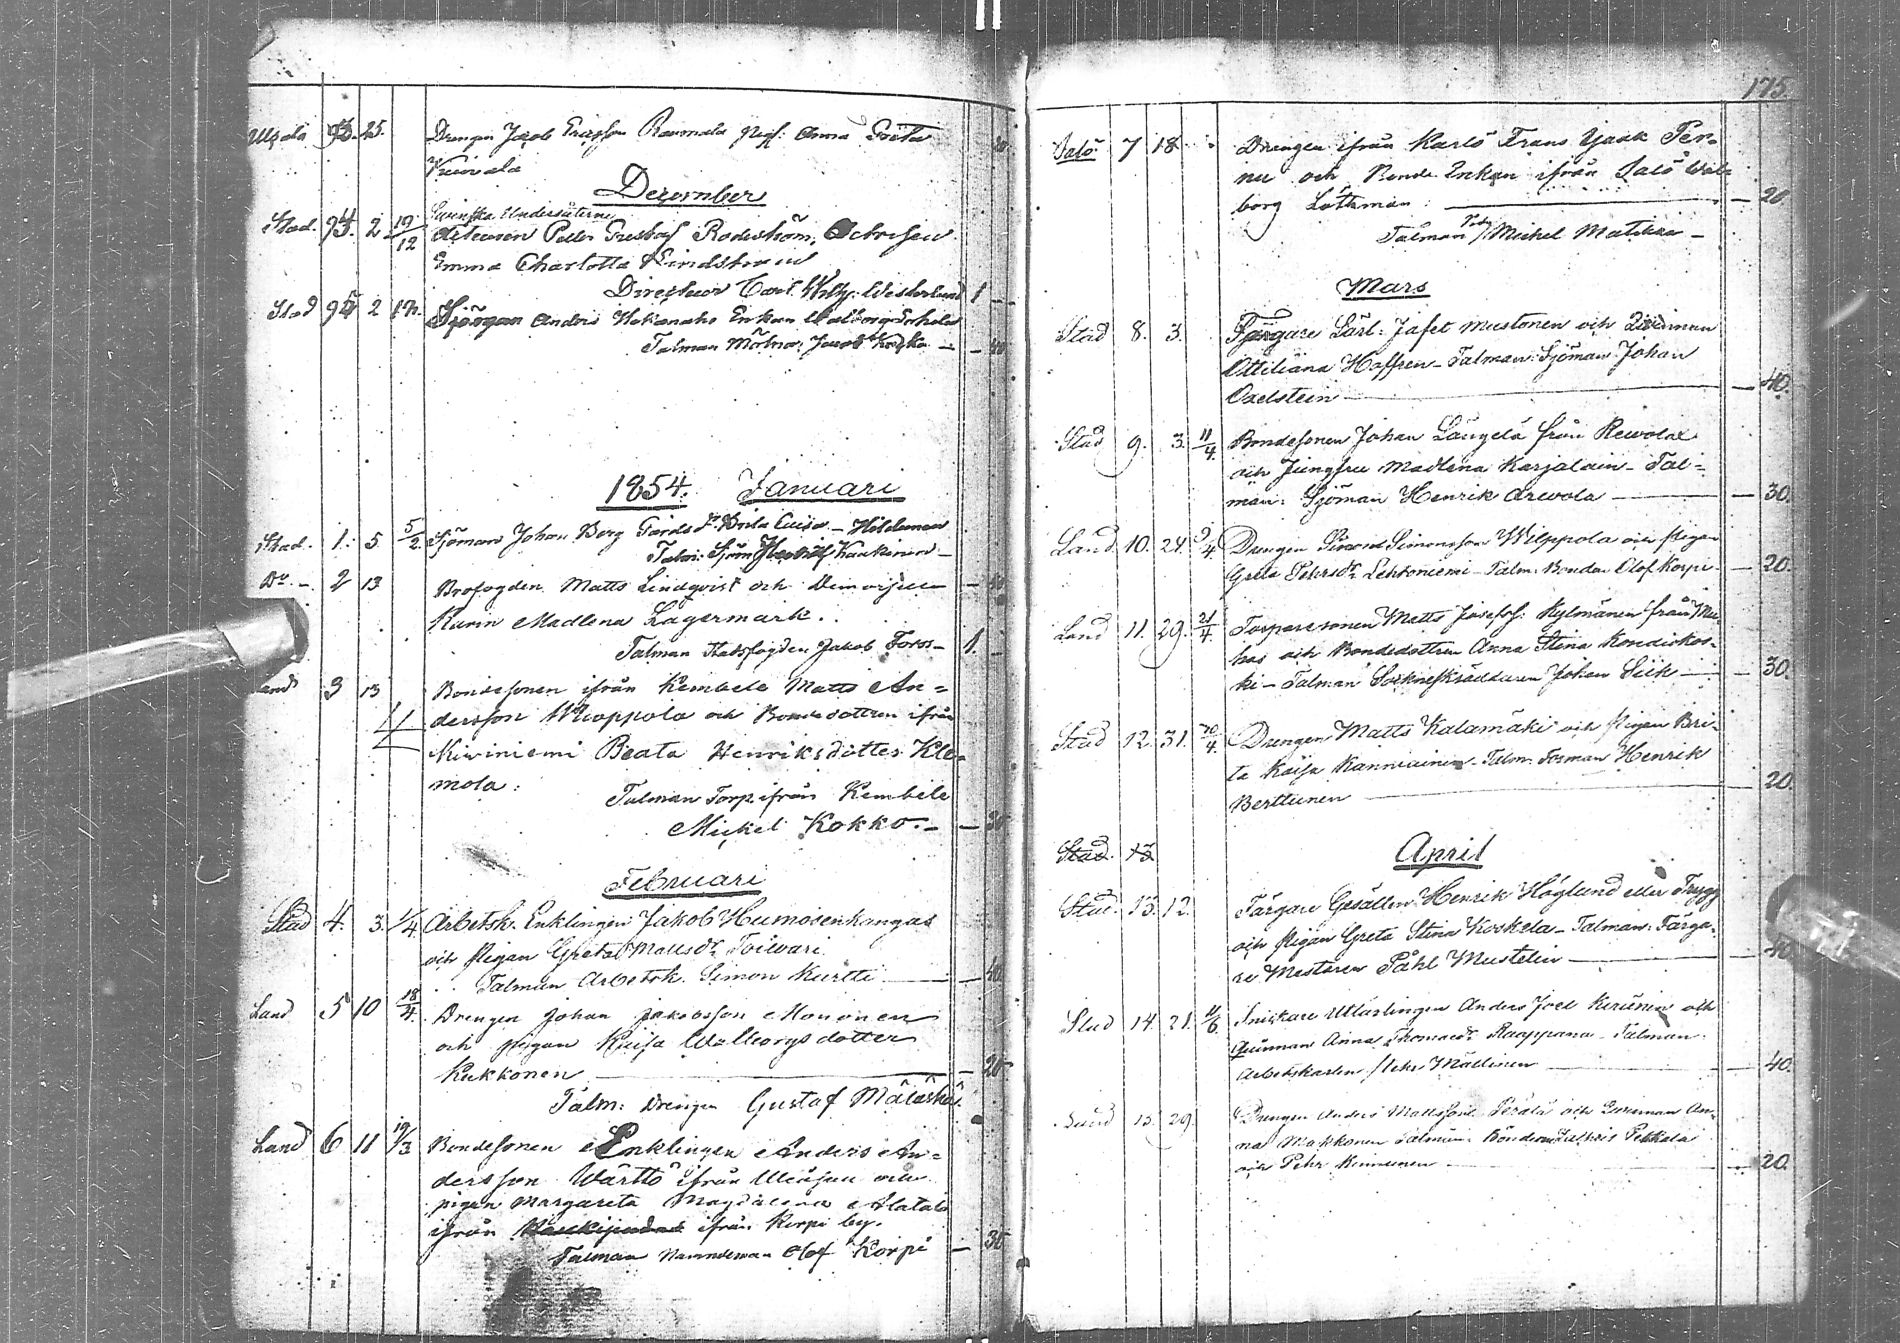 93. 25. Drengen Jacob Ericsson Raumala Pig: Anna Greta
December
Svenska Undersåterne
Stad. 94. 2 19/12 Petter Gustaf Rodeström,
Emma Charlotta Lindström
Directeur Carl Wilh: Westerlund 1 —
Stad 95 2 Anders Enkan
Talman Jacob — 40
1854. Januari
Stad. 1. 5 5/2 Sjöman Johan Berg Gårds D. Brita Cajsa — Hildeman
Talm: Sjöm —
Do — 2 13 Brofogden Matts Lindqvist och Demoiselle
Karin Madlena Lagermark.
Talman Stadsfogden Jakob Forss — 1. —
3 13 Bondesonen ifrån Kembele Matts An=
dersson och Bonde dottren ifrån
Niviniemi Beata Henriksdotter Kle=
mola:
Talman Torp. ifrån Kembele
Mickel Kokko. — 30
Februari
Stad 4. 3. 1/4 Arbetsk. Enklingen Jakob Humosenkangas
och Pigan Greta Mattsdr Toiwari
Talman Arbetsk. Simon Kurtti — 40
Land 5 10 18/4 Drengen Johan Jakobsson Mononen
och pigan Kaisa Wallborgsdotter
Kukkonen — 20
Talm: Drengen Gustaf
Land 6 11 19/3 Bondesonen Enklingen Anders An=
dersson Wärttö ifrån
pigan Margareta Magdalena Alatalo
ifrån ifrån Korpi by.
Talman Nämndeman Olof Korpi — 30
175.
Salo 7 18 Drengen ifrån Karlö Frans Isaak Per=
nu och Bonde Enkan ifrån Salo Wal=
borg Lättman: — 20
Talman Michel Matikka —
Mars
Stad 8. 3. Färgare Lärl: Jafet Mustonen och Qvinnan
Ottiliana Haffren — Talman: Sjöman Johan
Oxelstein — 40.
Stad 9. 3. 11/4. Bondesonen Johan Längelä från Rewolax
och Jungfru Madlena Karjalain — Tal=
man: Sjöman Henrik Arwola — 30.
Land 10. 24. 9/4 Drengen Simon Simonsson Wilppola och Pigan
Greta Pehrsdr Lehtoniemi — Talm: Bonden Olof Korpi — 20.
Land 11. 29. 21/4. Torparesonen Matts Josefss: Kylmänen från
och Bondedottren Anna Stina Kondiokos=
ki — Talman Sockneskräddaren Johan Siik — 30.
Stad 12. 31. 20/4. Drengen Matts Kalamäki och Pigan Bri=
ta Kaisa Kanniainen — Talm: Forman Henrik
Berttunen — 20.
Stad. 13
April
Stad. 13. 12. Färgare Gesällen Henrik Höglund eller Trygg
och Pigan Greta Stina Koskela — Talman: Färga=
re Mästaren Påhl Mustelin — 40
Stad 14. 21. 11/6 Snickare Utlärlingen Anders Joel Keränen och
Qvinnan Anna Thomasdr Raappana — Talman
Arbetskarlen Pehr Mällinen — 40.
Land 15. 29. Drengen Anders Mattsson Perälä och Qvinnan An=
na Makkonen Talmän: Bönderne Pekkala
och Pehr Kinnunen — 20.